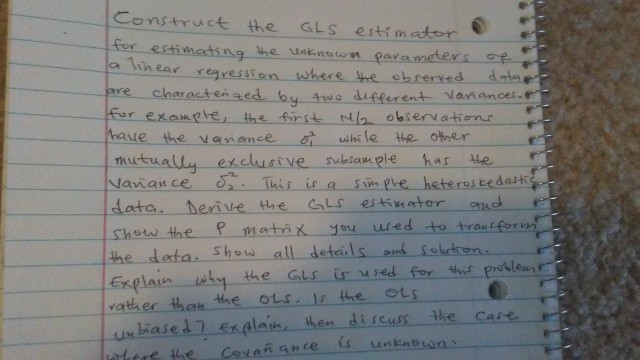 Construct the GLS estimator
for estimating the unknown parameters of
a linear regression where the observed data
are characterized by two different variances.
For example, the first N/2 observations
have the variance σ₁² while the other
mutually exclusive subsample has the
variance σ₂². This is a simple heteroskedastic
data. Derive the GLS estimator and
show the P matrix you used to transform
the data. Show all details and solution.
Explain why the GLS is used for this problem
rather than the OLS. Is the OLS
unbiased? Explain, then discuss the case
where the covariance is unknown.